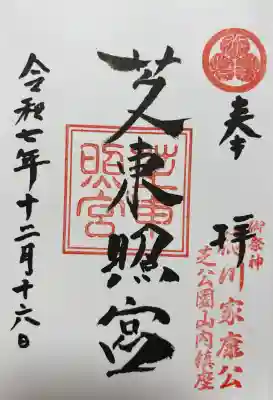 奉拝
御祭神
徳川家康公
芝公園山内鎮座
芝東照宮
芝東照宮
令和七年十二月十六日